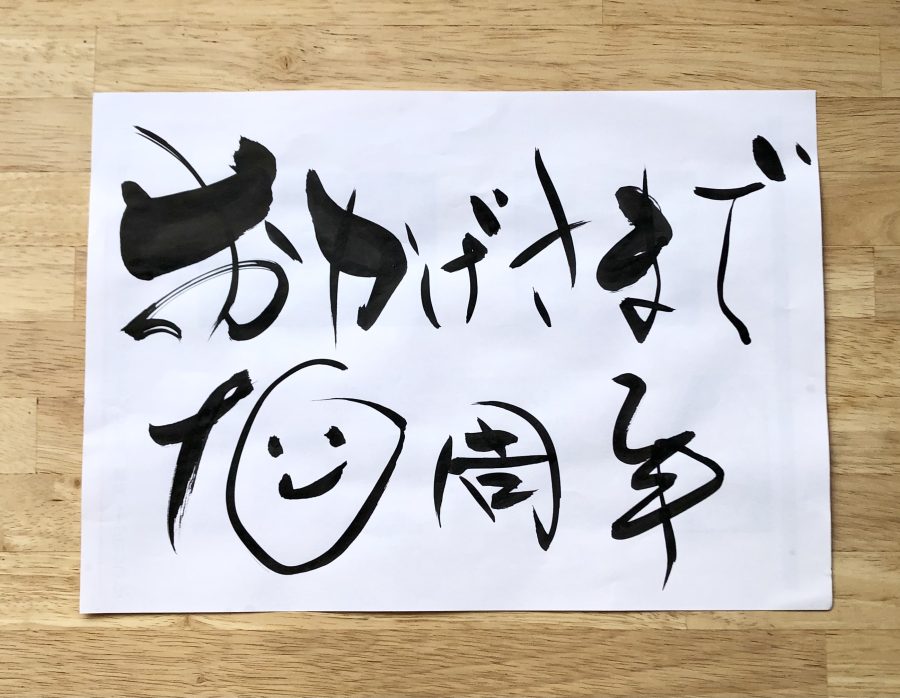 おかげさまで
10周年